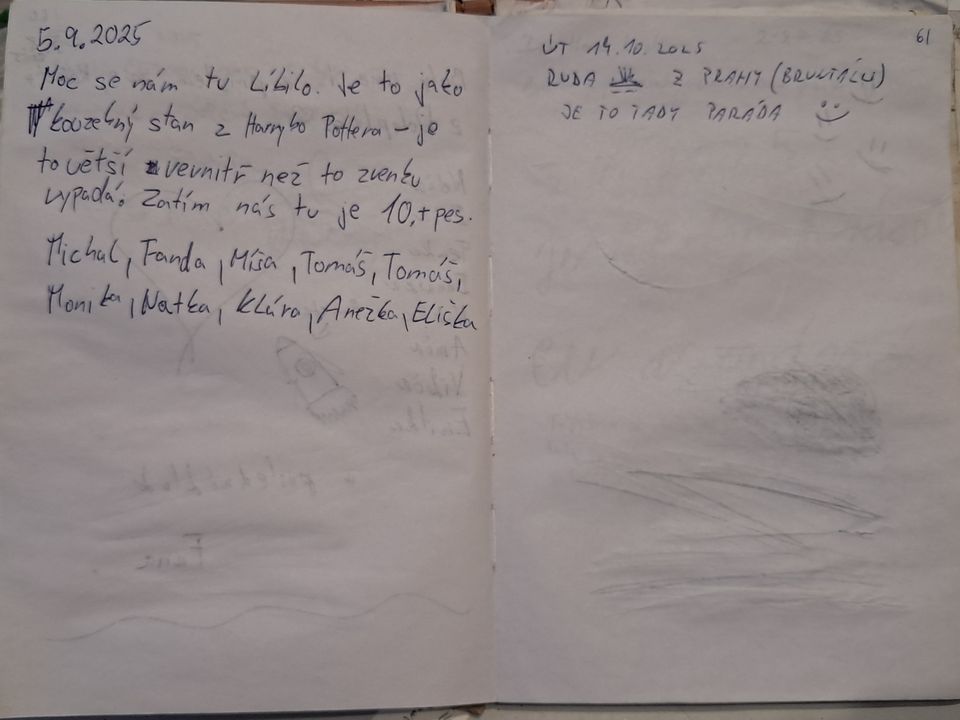 5.9.2025
Moc se nám tu líbilo. Je to jako
kouzelný stan z Harryho Pottera – je
to větší vevnitř než to zvenku
vypadá. Zatím nás tu je 10,+pes.
Michal, Fanda, Míša, Tomáš, Tomáš,
Monika, Natka, Klára, Anežka, Eliška
61
ÚT 14.10.2025
RUDA Z PRAHY (BRUNTÁLU)
JE TO TADY PARÁDA